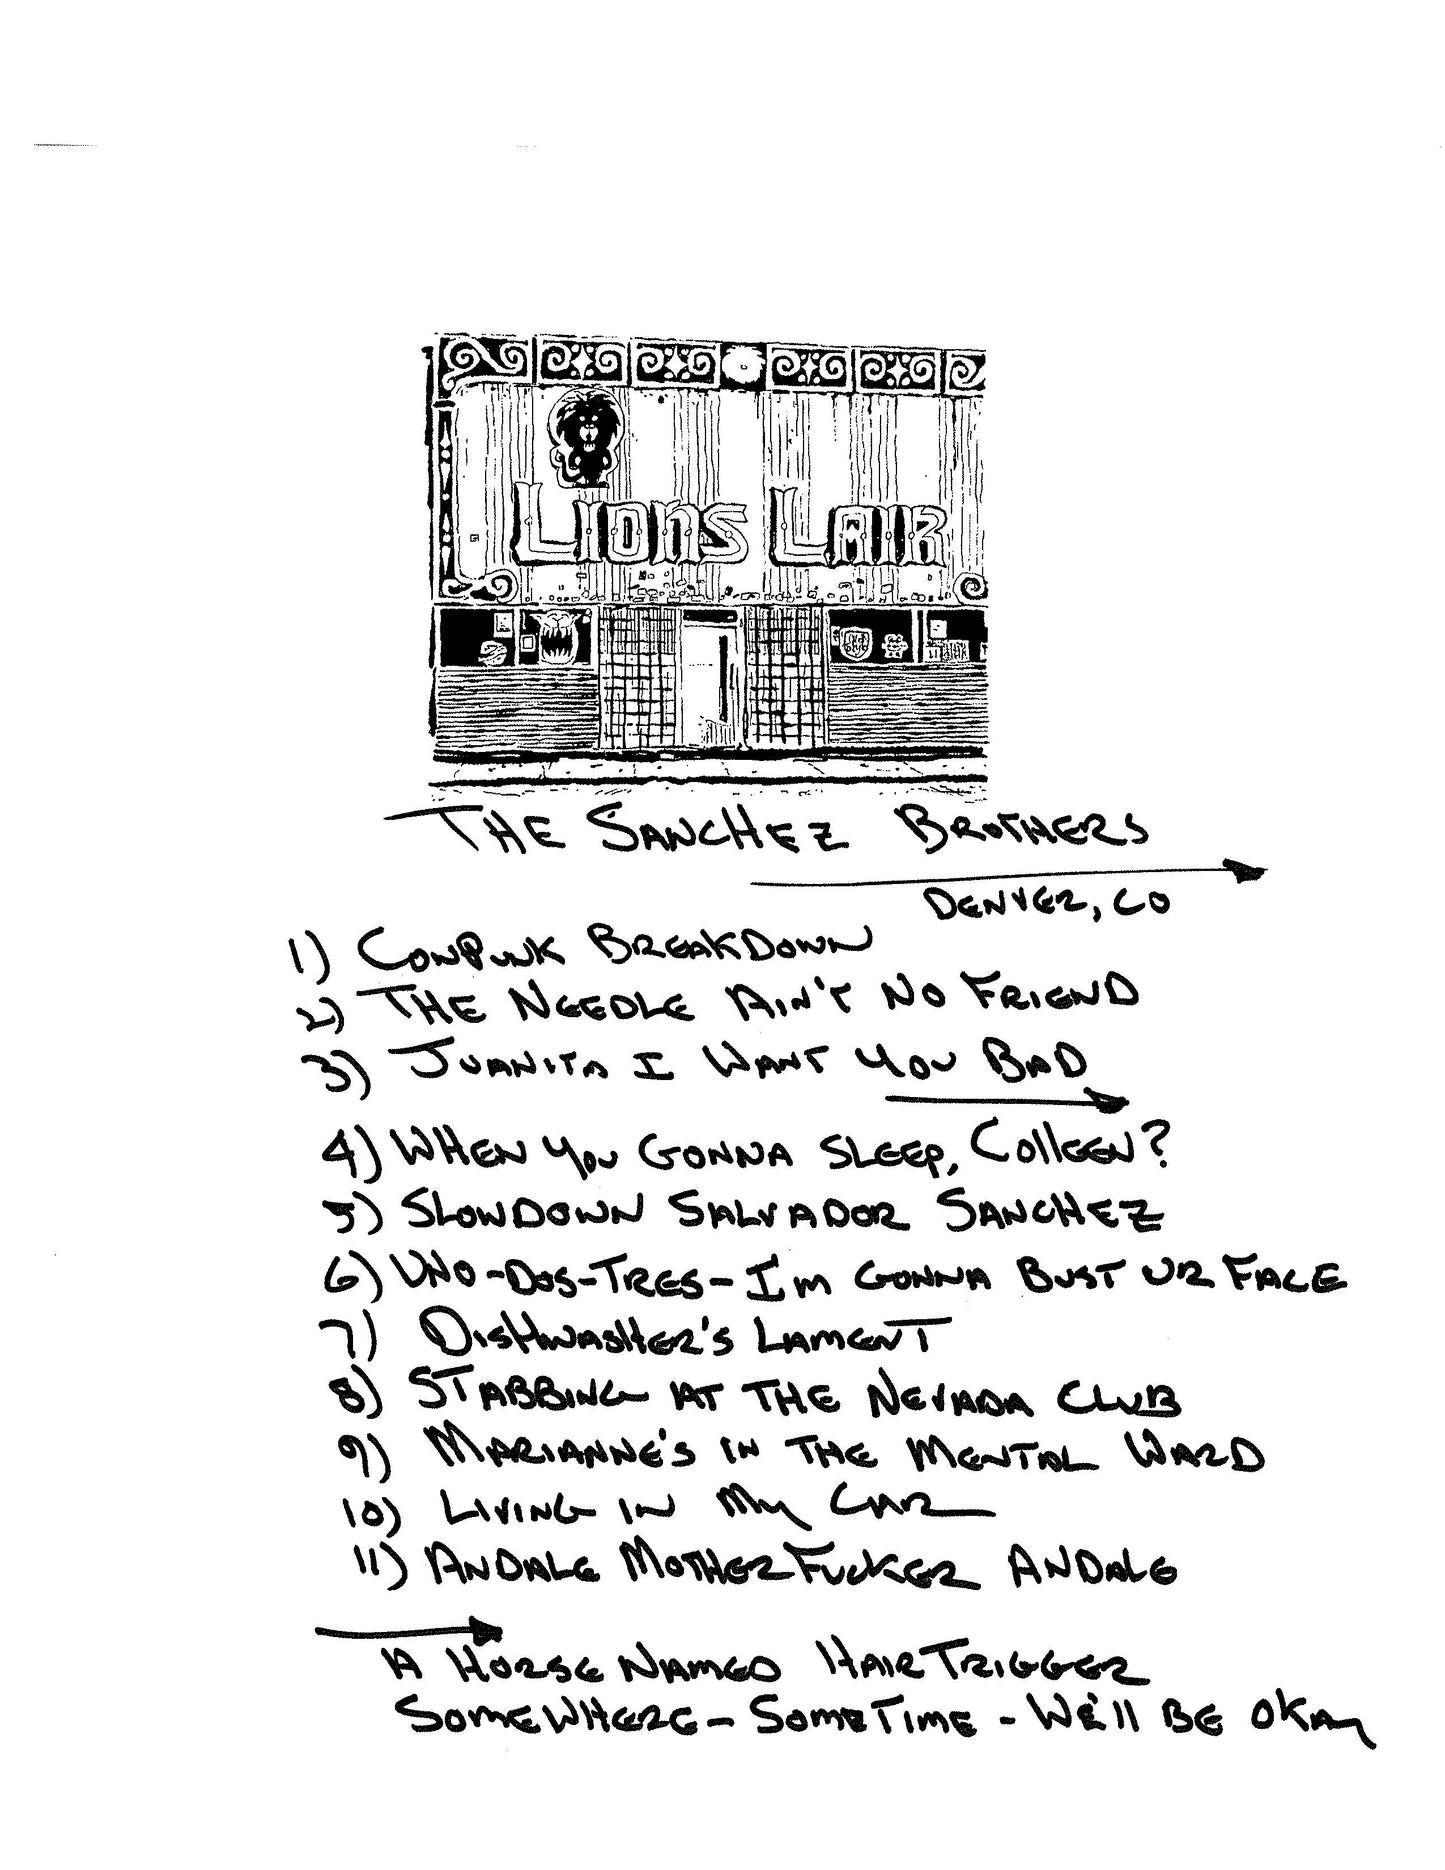 LIONS LAIR
THE SANCHEZ BROTHERS
DENVER, CO
1) CONPUNK BREAKDOWN
2) THE NEEDLE AIN'T NO FRIEND
3) JUANITA I WANT YOU BAD
4) WHEN YOU GONNA SLEEP, COLLEEN?
5) SLOWDOWN SALVADOR SANCHEZ
6) UNO-DOS-TRES-I'M GONNA BUST UR FACE
7) DISHWASHER'S LAMENT
8) STABBING AT THE NEVADA CLUB
9) MARIANNE'S IN THE MENTAL WARD
10) LIVING IN MY CAR
11) ANDALE MOTHERFUCKER ANDALE
A HORSE NAMED HAIRTRIGGER
SOMEWHERE-SOMETIME-WE'LL BE OKAY